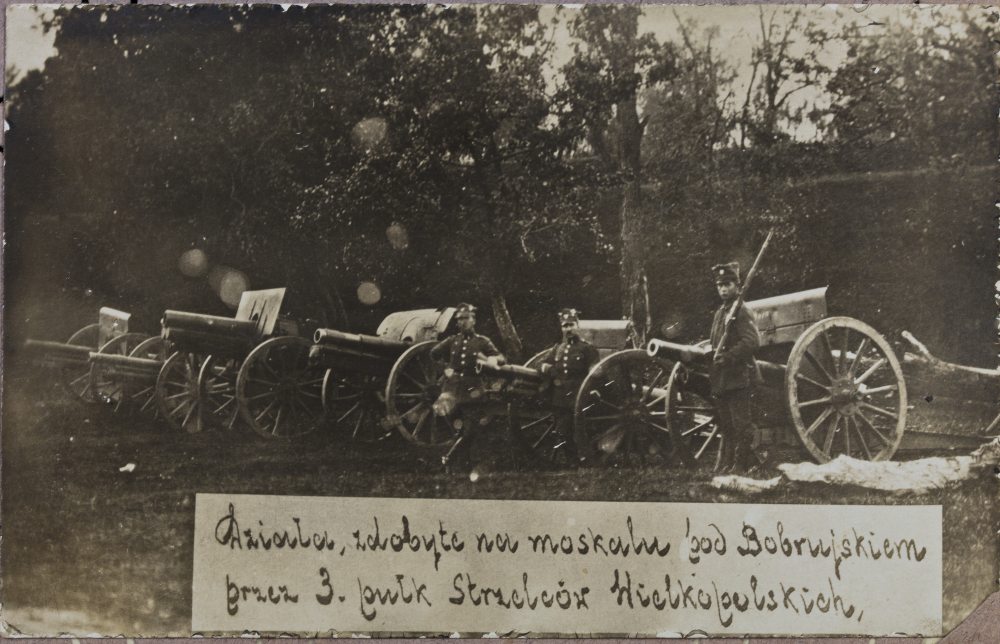 Działa, zdobyte na moskalu pod Bobrujskiem
przez 3. pułk Strzelców Wielkopolskich,